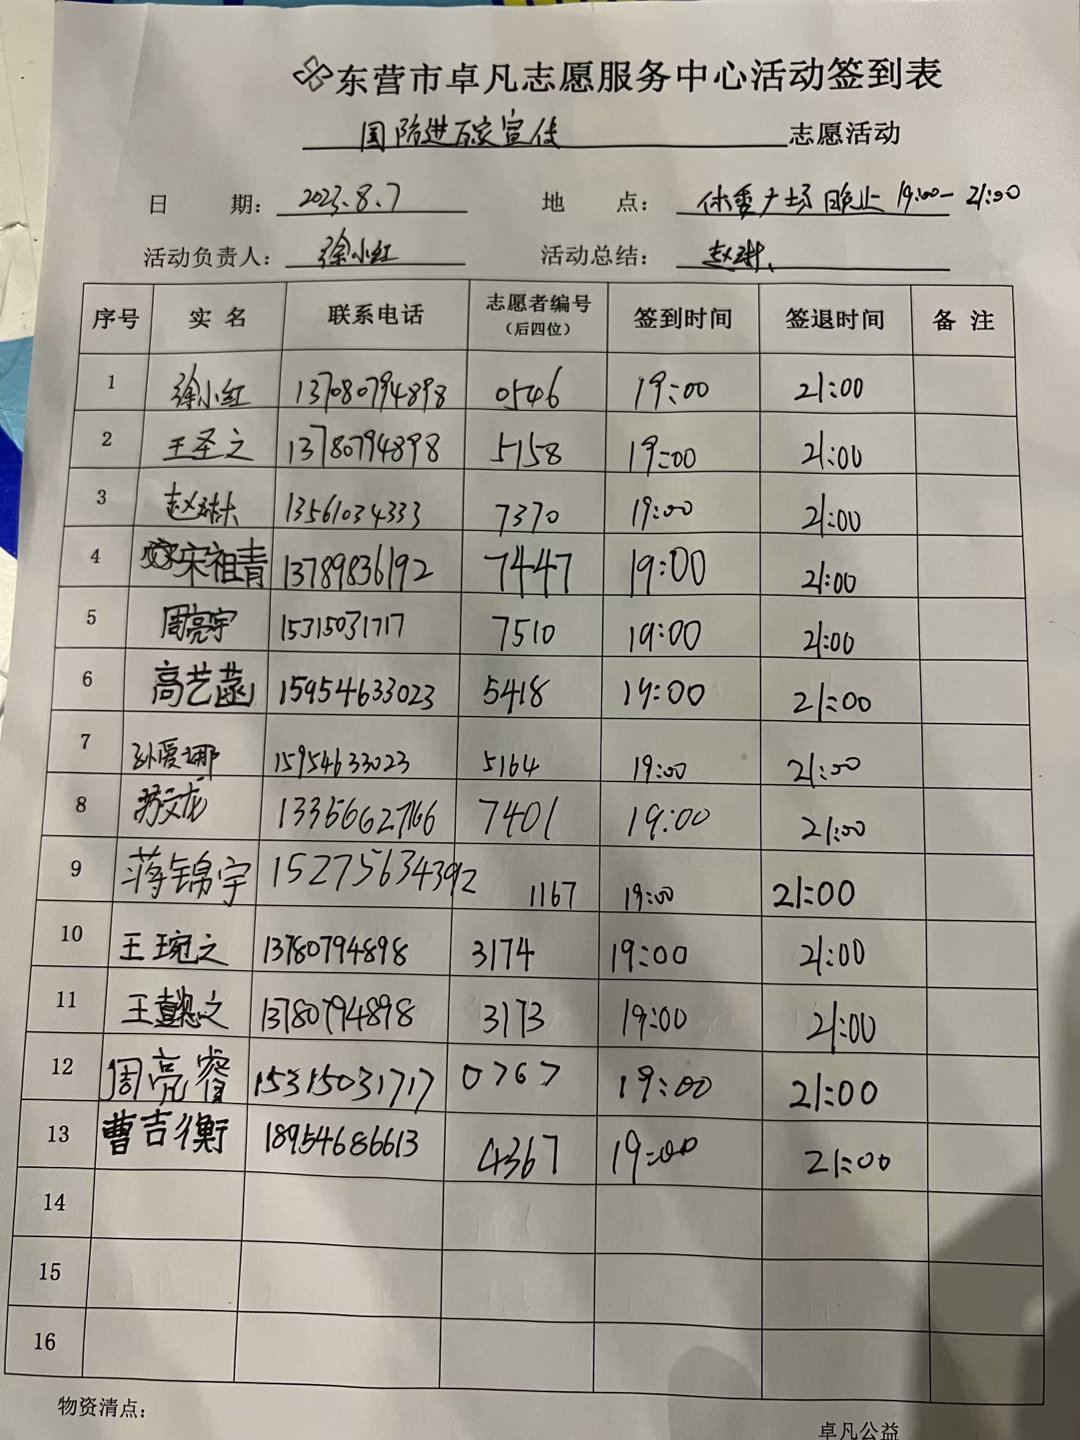 东营市卓凡志愿服务中心活动签到表
国防进百家宣传 志愿活动
日 期： 2023.8.7 地 点： 体委广场 晚上 19:00-21:00
活动负责人： 徐小红 活动总结： 赵琳
序号 实名 联系电话 志愿者编号（后四位） 签到时间 签退时间 备注
1 徐小红 13780794898 0546 19:00 21:00
2 王圣之 13780794898 5158 19:00 21:00
3 赵琳 13561034333 7370 19:00 21:00
4 宋祖青 13789836192 7447 19:00 21:00
5 周亮宇 15315031717 7510 19:00 21:00
6 高艺菡 15954633023 5418 19:00 21:00
7 孙爱娜 15954633023 5164 19:00 21:00
8 文龙 7401 19:00 21:00
9 蒋锦宇 15275634392 1167 19:00 21:00
10 王琬之 13780794898 3174 19:00 21:00
11 王懿之 13780794898 3173 19:00 21:00
12 周亮睿 15315031717 0767 19:00 21:00
13 曹吉衡 18954686613 4367 19:00 21:00
14
15
16
物资清点：
卓凡公益